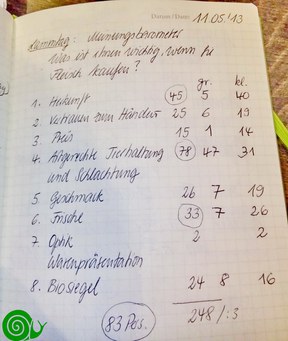 Datum/Date: 11.05.'13
Dienstag: Meinungsbarometer
Was ist Ihnen wichtig, wenn Sie
Fleisch kaufen?
gr. kl.
1. Herkunft 45 5 40
2. Vertrauen zum Händler 25 6 19
3. Preis 15 1 14
4. Artgerechte Tierhaltung 78 47 31
und Schlachtung
5. Geschmack 26 7 19
6. Frische 33 7 26
7. Optik 2 2
Warenpräsentation
8. Biosiegel 24 8 16
83 Pers. 248/:3